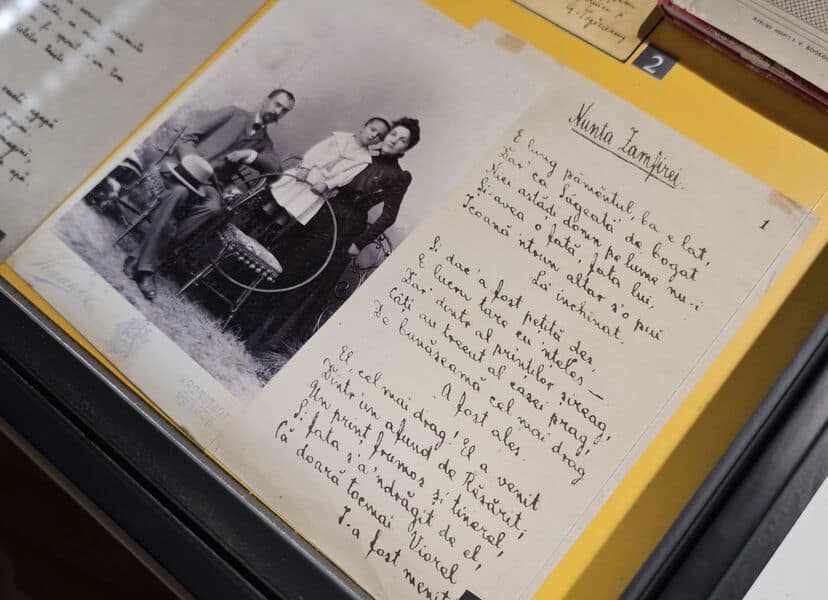 2
Nunta Zamfirei.
1
E lung pământul, ba e lat,
Dar ca Săgeată de bogat
Nici astăzi domn pe lume nu-i
Și avea o fată, fata lui,
Icoană 'ntrun altar s'o pui
La închinat.
Și dac'a fost pețită des,
E lucru tare cu 'nțeles —
Dar dintr al prinților șireag,
Câți au trecut al casei prag,
De bunăseamă cel mai drag
A fost ales.
El cel mai drag! El a venit
Dintr un afund de Răsărit,
Un prinț frumos și tinerel,
Și fata s'a 'ndrăgit de el,
Că doară tocmai Viorel
I-a fost menit